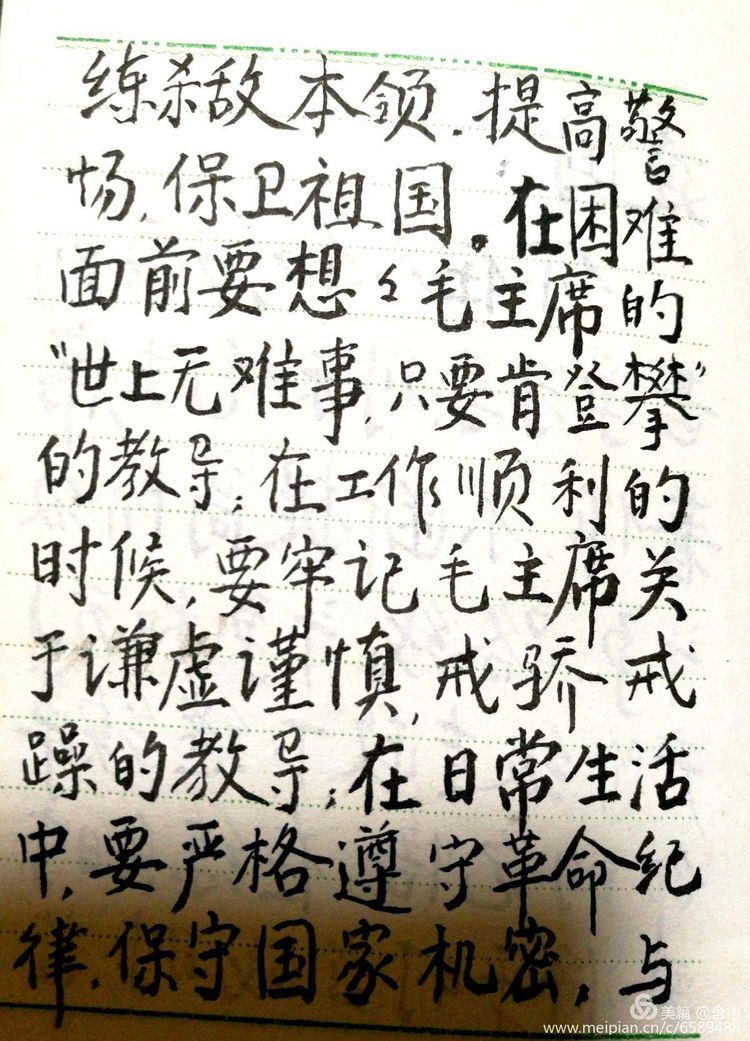 练杀敌本领.提高警
惕,保卫祖国。在困难
面前要想毛主席的
"世上无难事,只要肯登攀"
的教导;在工作顺利的
时候,要牢记毛主席关
于谦虚谨慎,戒骄戒
躁的教导;在日常生活
中,要严格遵守革命纪
律,保守国家机密,与
美篇 @舍得
www.meipian.cn/c/6589488